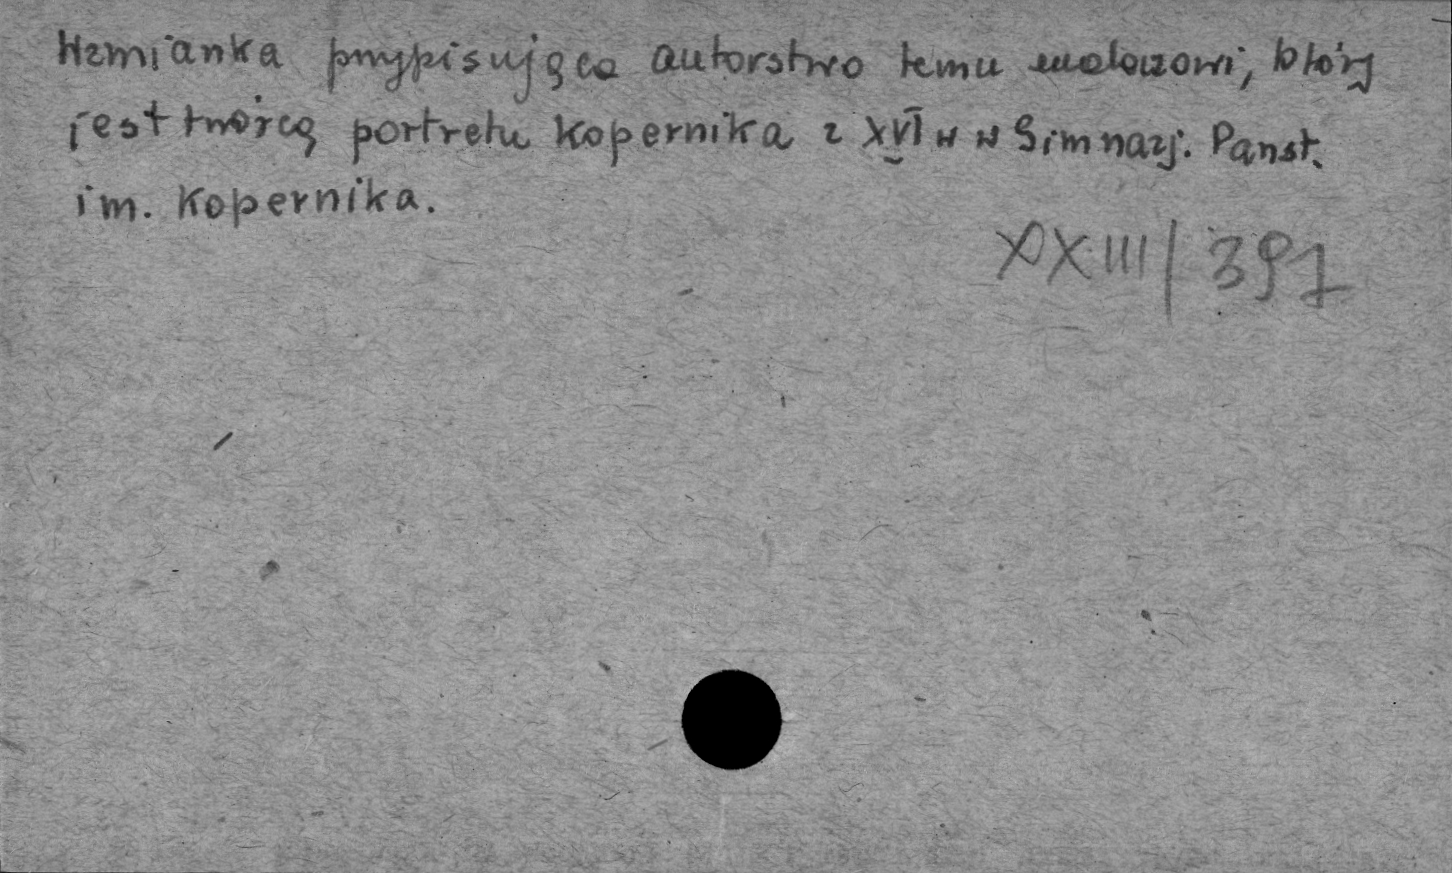 Wzmianka przypisująca autorstwo temu malarzowi, który
jest twórcą portretu Kopernika z XVI w w Gimnazj. Państ.
im. Kopernika.
XXIII/391